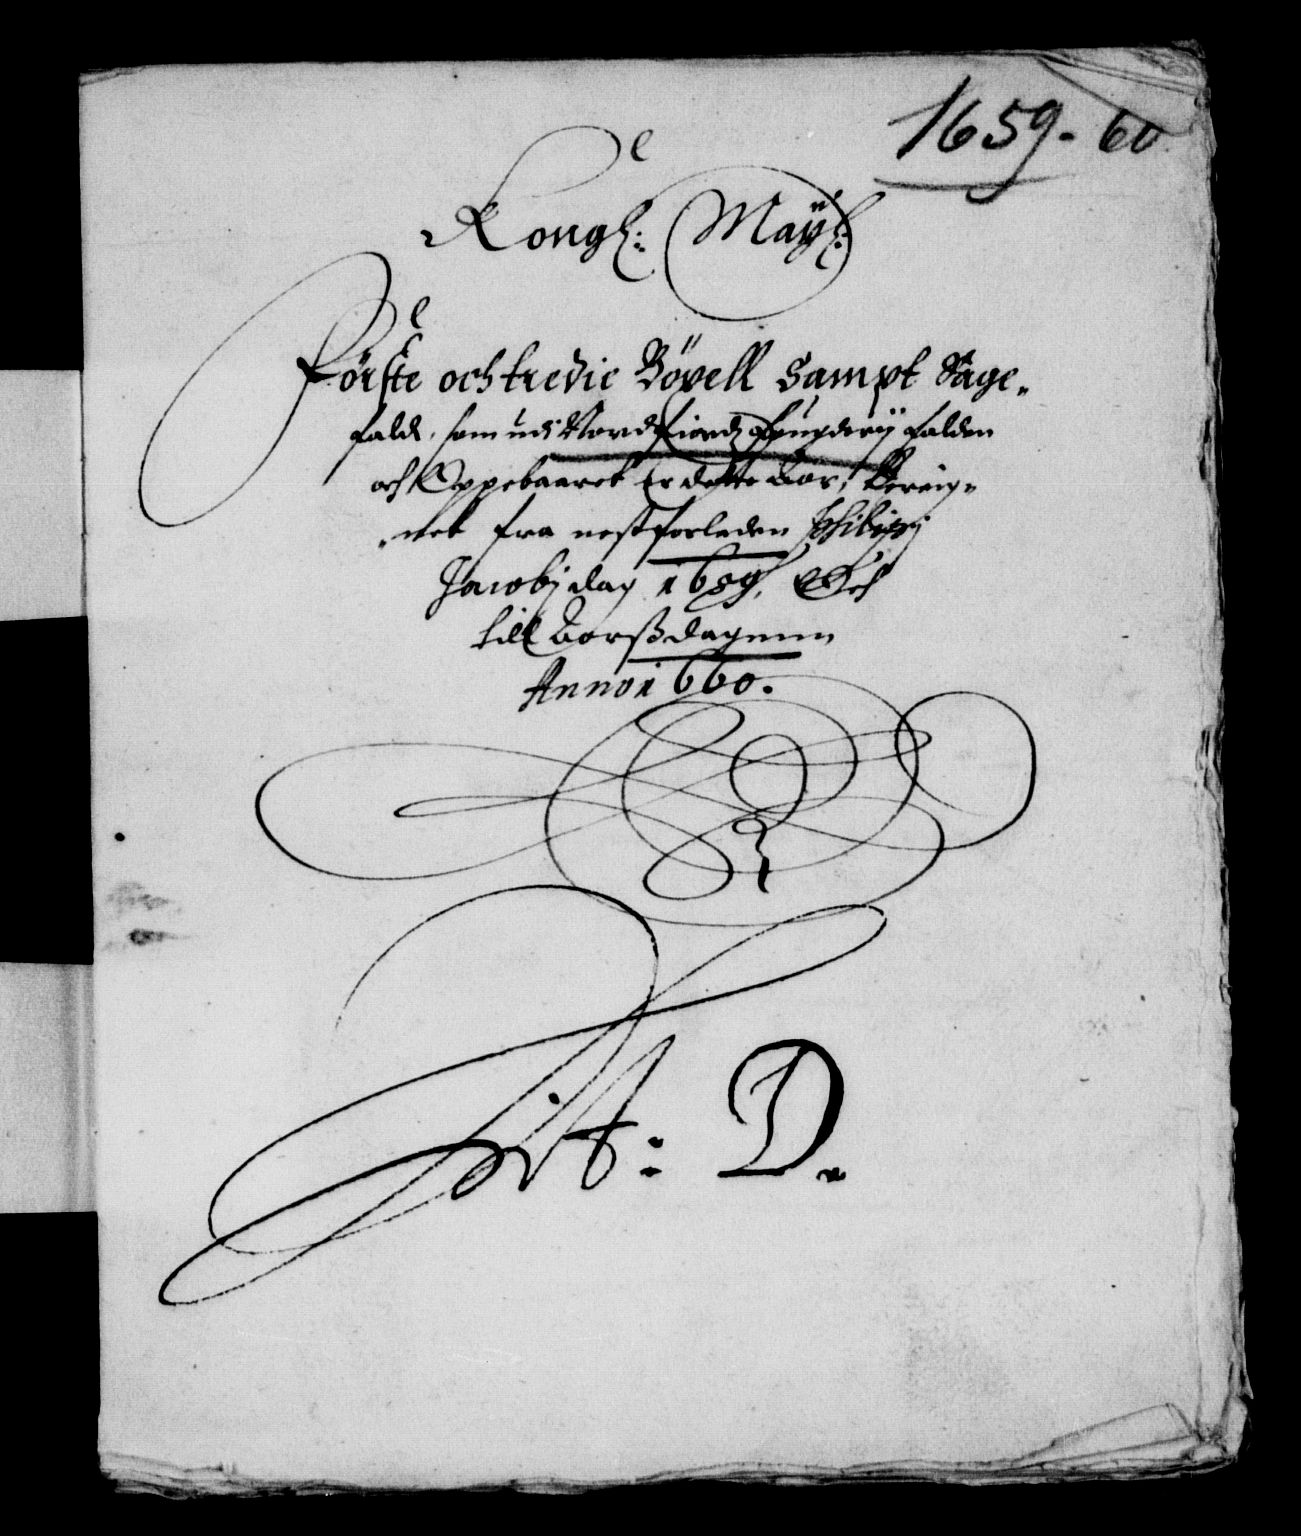 1659-60
Kongl: Mayl:
Förste och tredie Böxell Sampt Sage-
fald, som udi Nordfiords fougderij falden
och Oppebaaret Er dette Aar, Bereig-
net fra nestforleden Philippi
Jacobj dag 1659, Och
till Aarsdagenn
Anno 1660.
Lit A: D.